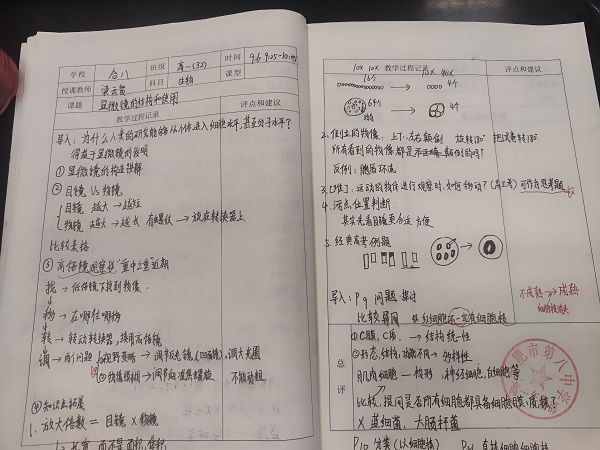 学校 合八 班级 高一(32) 时间 9.6 9:05-10:05
授课教师 科目 生物 课型
课题 显微镜的结构和使用
教学过程记录 评点和建议
导入：为什么人类的研究能够从个体进入细胞水平，甚至分子水平？
得益于显微镜的发明
① 显微镜的构造讲解
② 目镜 Vs 物镜
目镜 越大→越短
物镜 越大→越长 有螺纹→放在转换器上
比较表格
③ 高倍镜观察"重中之重"
找→低倍镜下找到物像
移→在哪往哪移
转→转动转换器，换用高倍镜
调→两个问题 ①视野变暗→调节反光镜(凹面镜)，调大光圈
②物像模糊→调节细准焦螺旋 不能动粗
④ 知识点拓展
1. 放大倍数＝目镜×物镜
教学过程记录 评点和建议
10x 10x 10x 40x
16个 4个
64个 4个
2. 倒立的物像：上下、左右颠倒 旋转180° 把试卷转180°
所有看到的物像都是颠倒的吗？
反例：胞质环流
3. 运动的物体进行观察时，如何移动？ 可作为思考题
4. 污点位置判断
其实先看目镜更合适 方便
5. 经典高考例题
导入：P9 问题探讨
比较异同 红细胞不一定有细胞核
不成熟→成熟
细胞核消失
总评
①C膜、C质、→结构统一性
②形态、结构、功能不同→多样性
肌肉细胞→梭形，神经细胞，白细胞等
比较，提问是否所有细胞都具有细胞膜，质，核？
X 蓝细菌、大肠杆菌
市第八中学